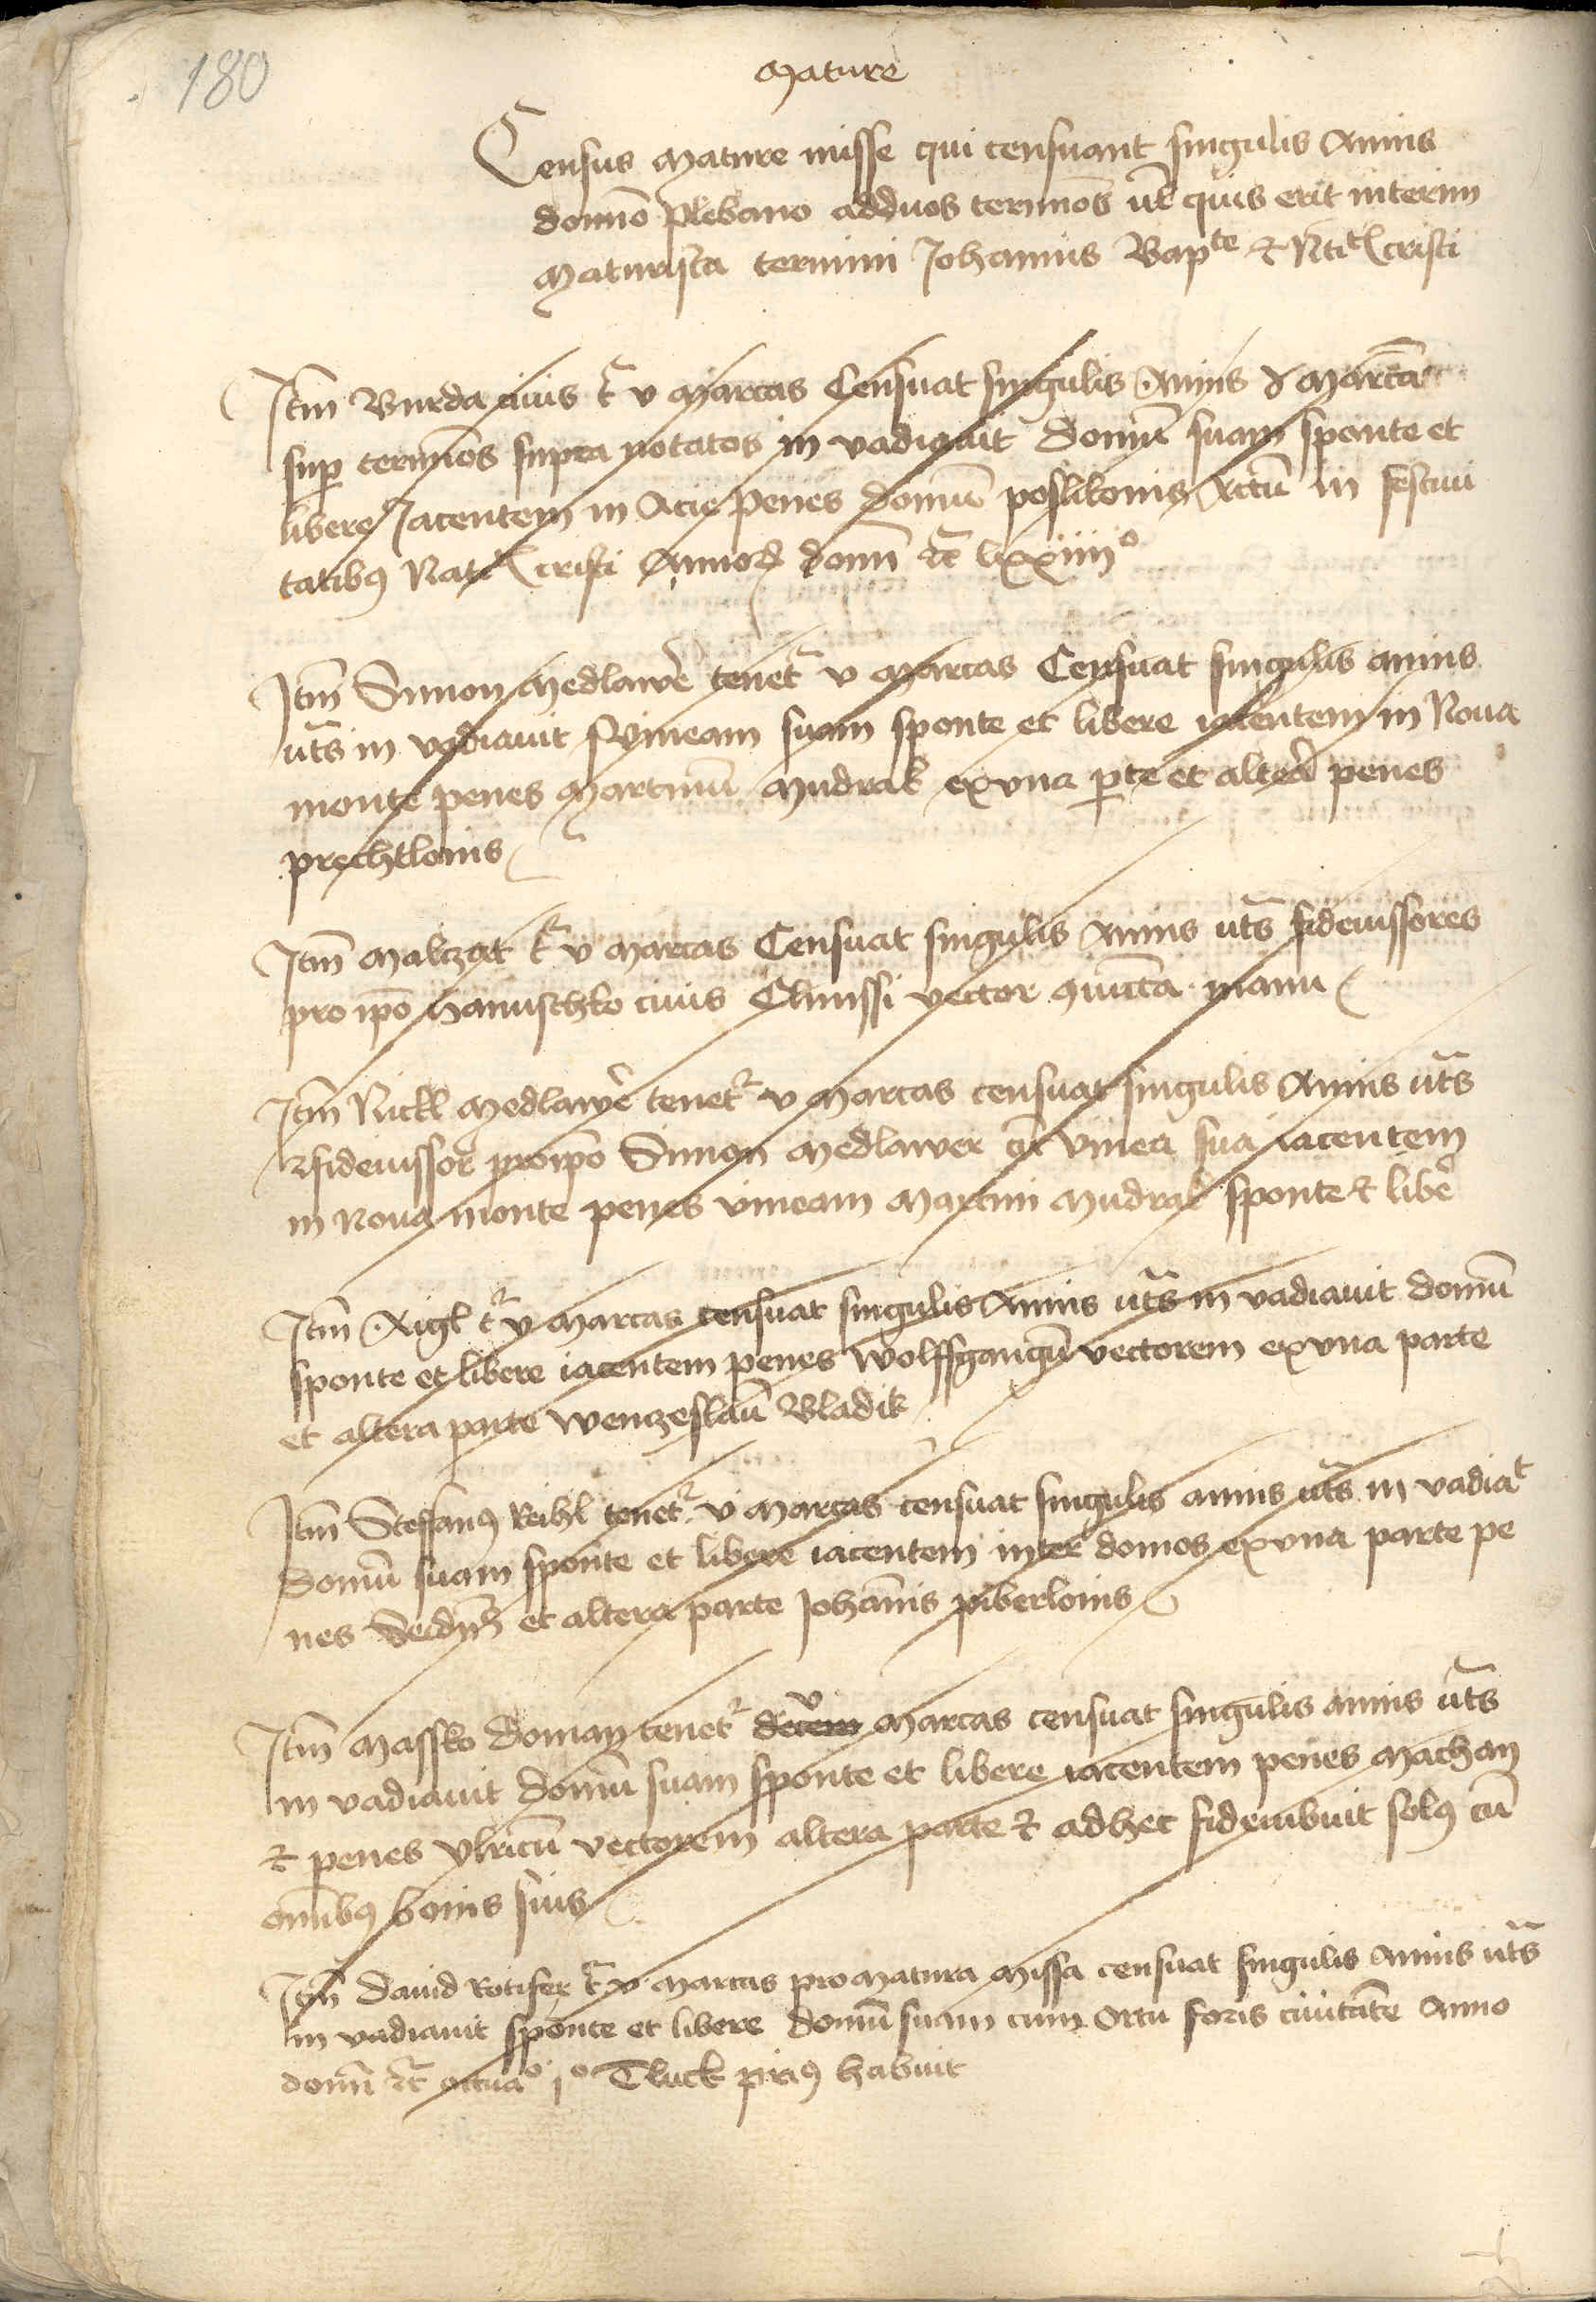 180
Mature
Census Mature misse qui censuant singulis Annis
domino plebano adduos terminos vel quis erit interim
Maturista termini Johannis Bapte et Ntitꝭ cristi
Itm Burda civis tr v Marcas Censuat singulis Annis ½ Marcam
sup terminos supra notatos in vadiavit domū suam sponte et
libere Jacentem in Acie penes domū poslikonis Actū in festivi
tatibꝰ Natꝭ cristi Annoꝝ domī etc lxxiiiiº
Itm Simon Medlawer tenetr v Marcas Censuat singulis annis
uts in vadiavit Vineam suam sponte et libere iacentem in Nova
monte penes Martinū Mudrak exvna pte et altera penes
prechtlonis
Itm Malczat tr v Marcas Censuat singulis Annis uts fideiussores
pro ipo Hanuschko civis Climssi vector coniuncta manu
Itm Nickl Medlawer tenetr v Marcas censuat singulis Annis uts
et fideiussor pro ipo Simon Medlawer cū vinea sua iacentem
in Nova monte penes vineam Martini Mudrak sponte et libere
Itm Aigl tr v Marcas censuat singulis Annis uts in vadiavit domū
sponte et libere iacentem penes Wolffgangū vectorem exvna parte
et altera parte Wenczeslaū Bladik
Itm Steffanꝰ Reihl tenetr v Marcas censuat singulis annis uts in vadiat
domū suam sponte et libere iacentem inter domos exvna parte pe
nes et altera parte Johānis piberlonis
Itm Massko doman tenetr decem v Marcas censuat singulis annis uts
in vadiavit domū suam sponte et libere iacentem penes Machan
et penes Vlricū vectorem altera parte et adhec fideiubuit solꝰ cū
omībꝰ bonis suis
Itm David Rotifer tr v Marcas pro Matura Missa censuat singulis Annis uts
in vadiavit sponte et libere domū suam cum ortu foris civitate Anno
domī etc octuaº jº Tluck priꝰ habuit